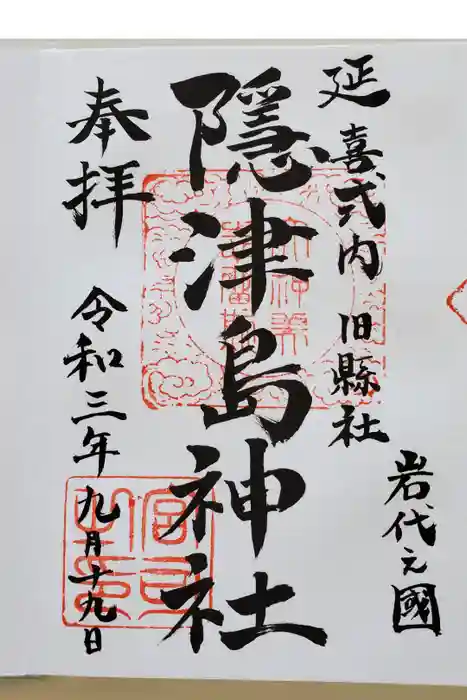 延喜式内 旧縣社
岩代之國
隱津島神社
奉拝
令和三年九月十九日